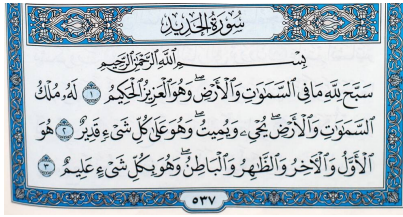 سُورَةُ الحَدِيدِ
بِسْمِ اللَّهِ الرَّحْمَٰنِ الرَّحِيمِ
سَبَّحَ لِلَّهِ مَا فِي السَّمَٰوَٰتِ وَالْأَرْضِ ۖ وَهُوَ الْعَزِيزُ الْحَكِيمُ ١ لَهُ مُلْكُ
السَّمَٰوَٰتِ وَالْأَرْضِ ۖ يُحْيِۦ وَيُمِيتُ ۖ وَهُوَ عَلَىٰ كُلِّ شَيْءٍ قَدِيرٌ ٢ هُوَ
الْأَوَّلُ وَالْآخِرُ وَالظَّٰهِرُ وَالْبَاطِنُ ۖ وَهُوَ بِكُلِّ شَيْءٍ عَلِيمٌ ٣
٥٣٧